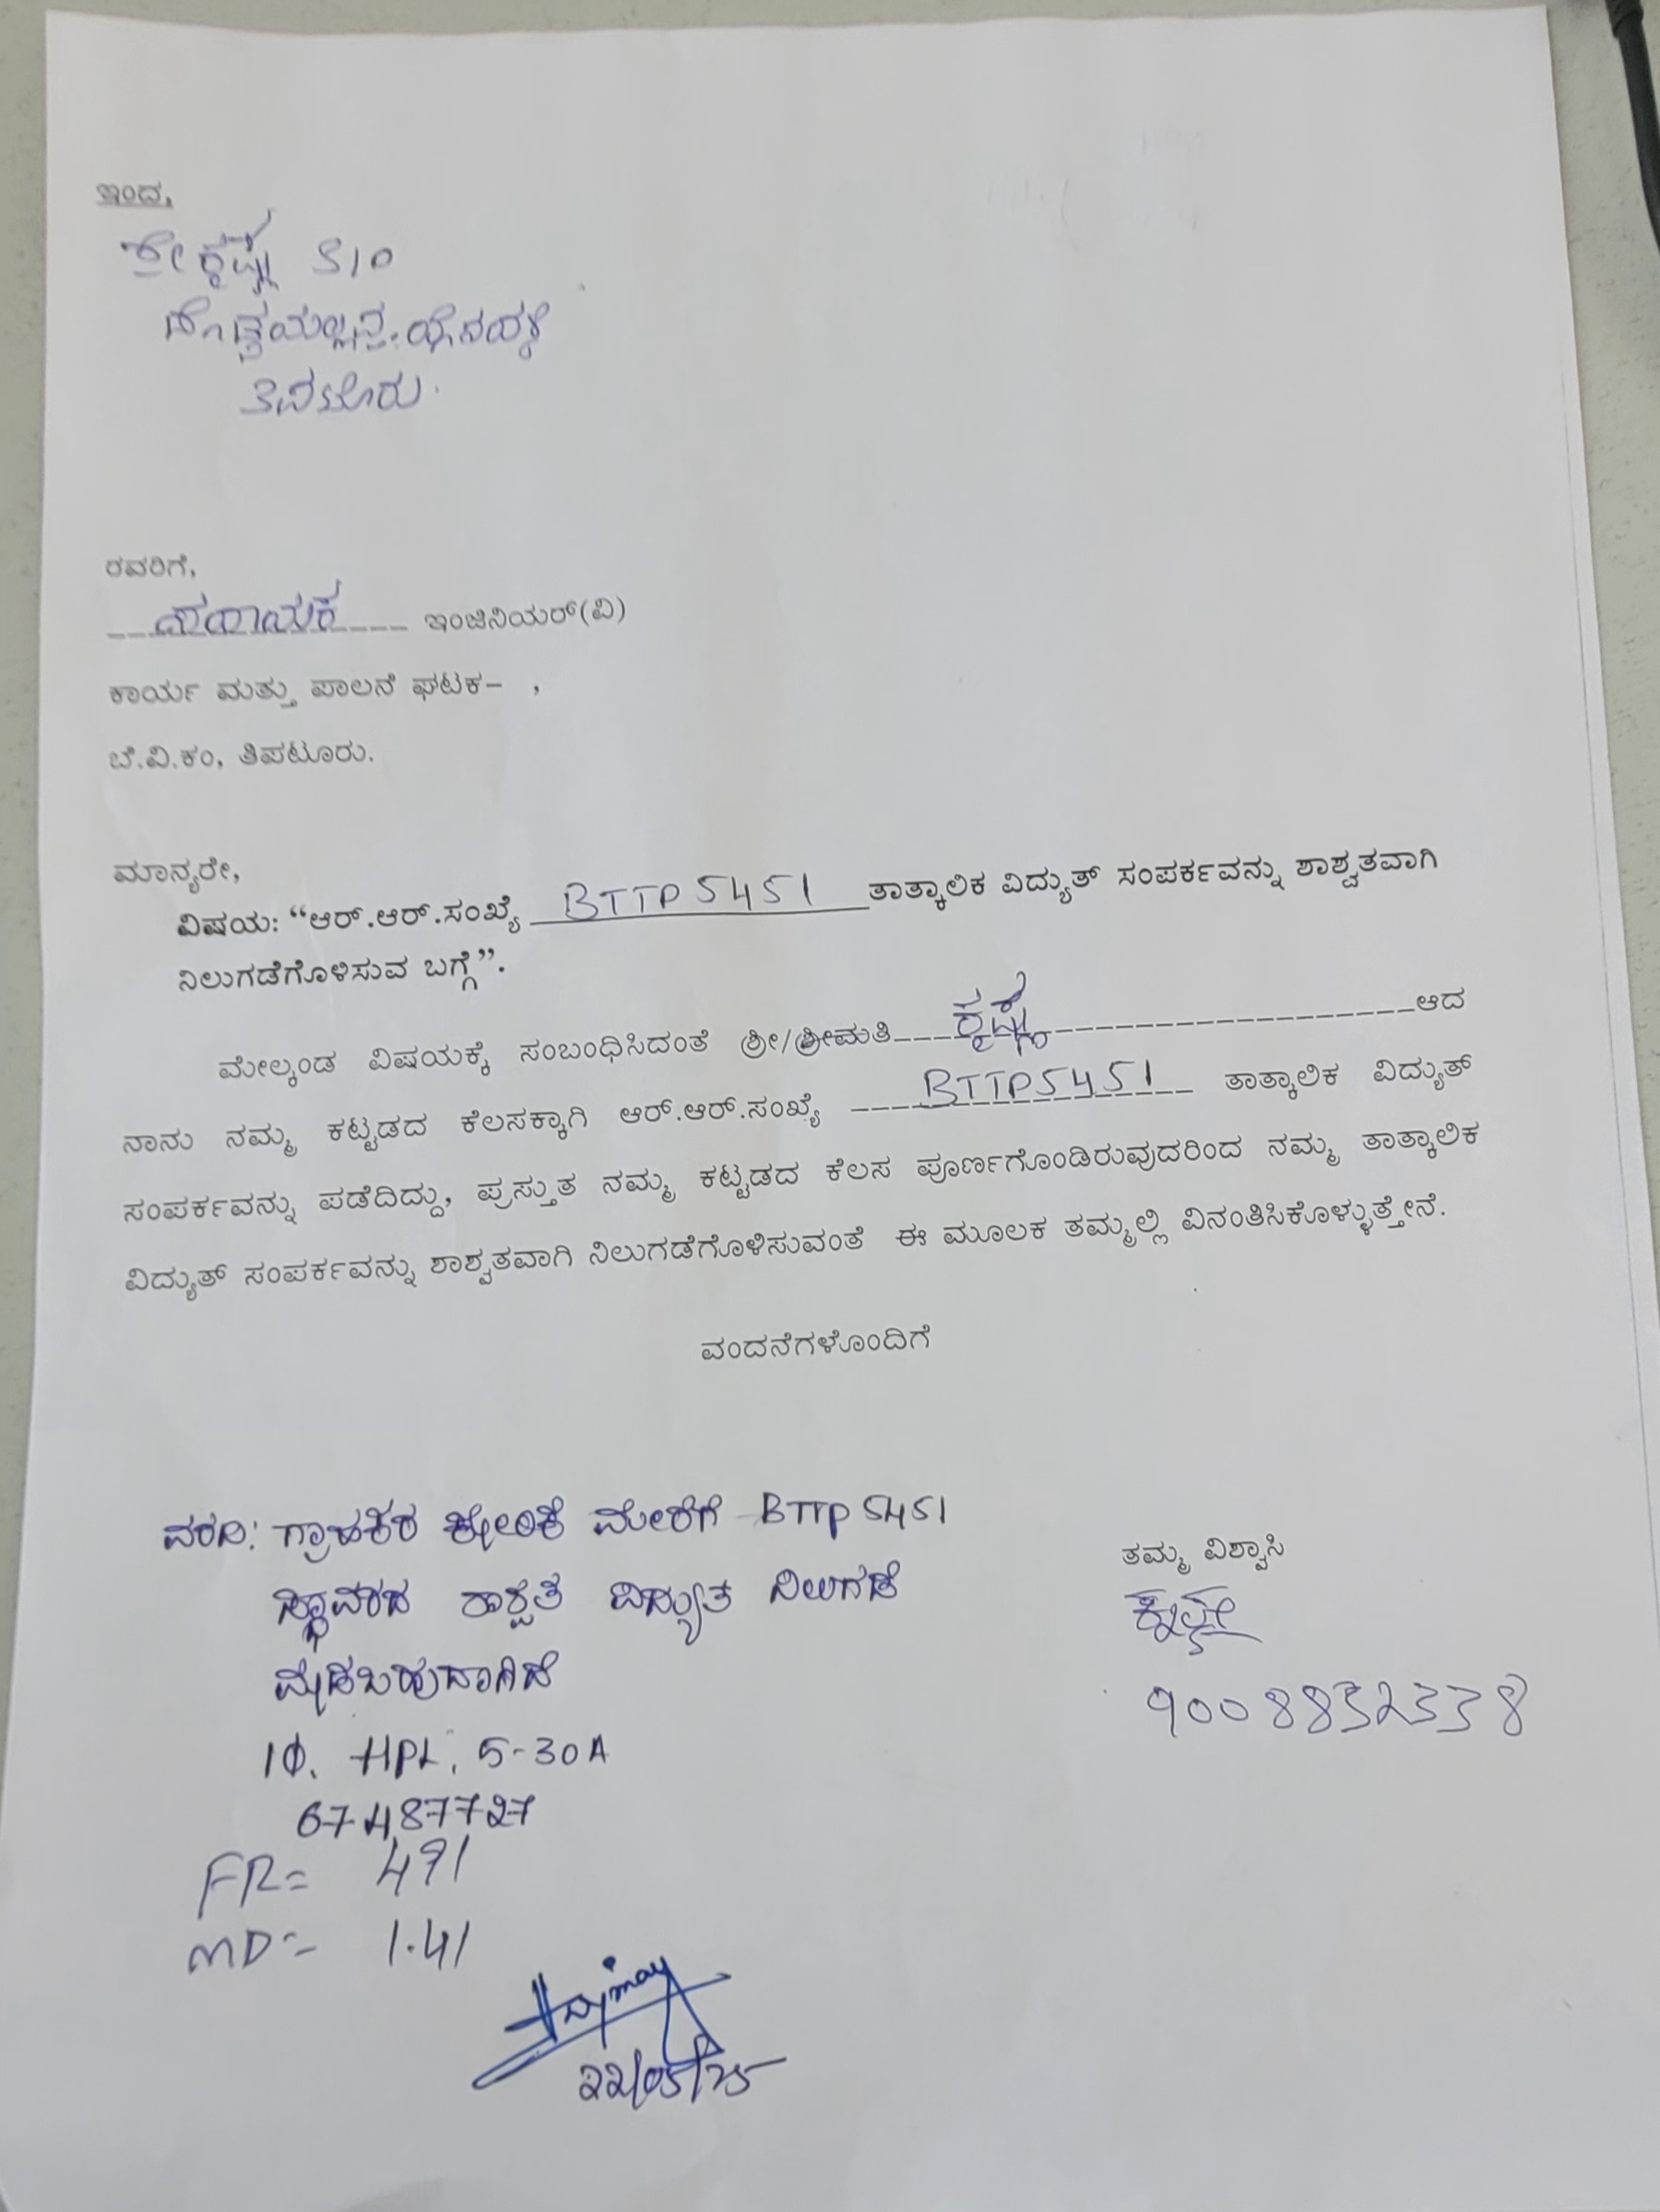 ಇಂದ,
ಕೃಷ್ಣ S/O
ತಿಪಟೂರು.
ರವರಿಗೆ,
ಸಹಾಯಕ ಇಂಜಿನಿಯರ್(ವಿ)
ಕಾರ್ಯ ಮತ್ತು ಪಾಲನೆ ಘಟಕ- ,
ಬೆ.ವಿ.ಕಂ, ತಿಪಟೂರು.
ಮಾನ್ಯರೇ,
ವಿಷಯ: “ಆರ್.ಆರ್.ಸಂಖ್ಯೆ BTTP5451 ತಾತ್ಕಾಲಿಕ ವಿದ್ಯುತ್ ಸಂಪರ್ಕವನ್ನು ಶಾಶ್ವತವಾಗಿ
ನಿಲುಗಡೆಗೊಳಿಸುವ ಬಗ್ಗೆ”.
ಮೇಲ್ಕಂಡ ವಿಷಯಕ್ಕೆ ಸಂಬಂಧಿಸಿದಂತೆ ಶ್ರೀ/ಶ್ರೀಮತಿ ಕೃಷ್ಣ ಆದ
ನಾನು ನಮ್ಮ ಕಟ್ಟಡದ ಕೆಲಸಕ್ಕಾಗಿ ಆರ್.ಆರ್.ಸಂಖ್ಯೆ BTTP5451 ತಾತ್ಕಾಲಿಕ ವಿದ್ಯುತ್
ಸಂಪರ್ಕವನ್ನು ಪಡೆದಿದ್ದು, ಪ್ರಸ್ತುತ ನಮ್ಮ ಕಟ್ಟಡದ ಕೆಲಸ ಪೂರ್ಣಗೊಂಡಿರುವುದರಿಂದ ನಮ್ಮ ತಾತ್ಕಾಲಿಕ
ವಿದ್ಯುತ್ ಸಂಪರ್ಕವನ್ನು ಶಾಶ್ವತವಾಗಿ ನಿಲುಗಡೆಗೊಳಿಸುವಂತೆ ಈ ಮೂಲಕ ತಮ್ಮಲ್ಲಿ ವಿನಂತಿಸಿಕೊಳ್ಳುತ್ತೇನೆ.
ವಂದನೆಗಳೊಂದಿಗೆ
ವರದಿ: ಗ್ರಾಹಕರ ಕೋರಿಕೆ ಮೇರೆಗೆ BTTP5451
ಸ್ಥಾವರದ ಶಾಶ್ವತ ವಿದ್ಯುತ ನಿಲುಗಡೆ
ಮಾಡಬಹುದಾಗಿದೆ
1Φ. HPL. 5-30A
67487727
FR= 491
MD= 1.41
22/05/25
ತಮ್ಮ ವಿಶ್ವಾಸಿ
ಕೃಷ್ಣ
9008832338